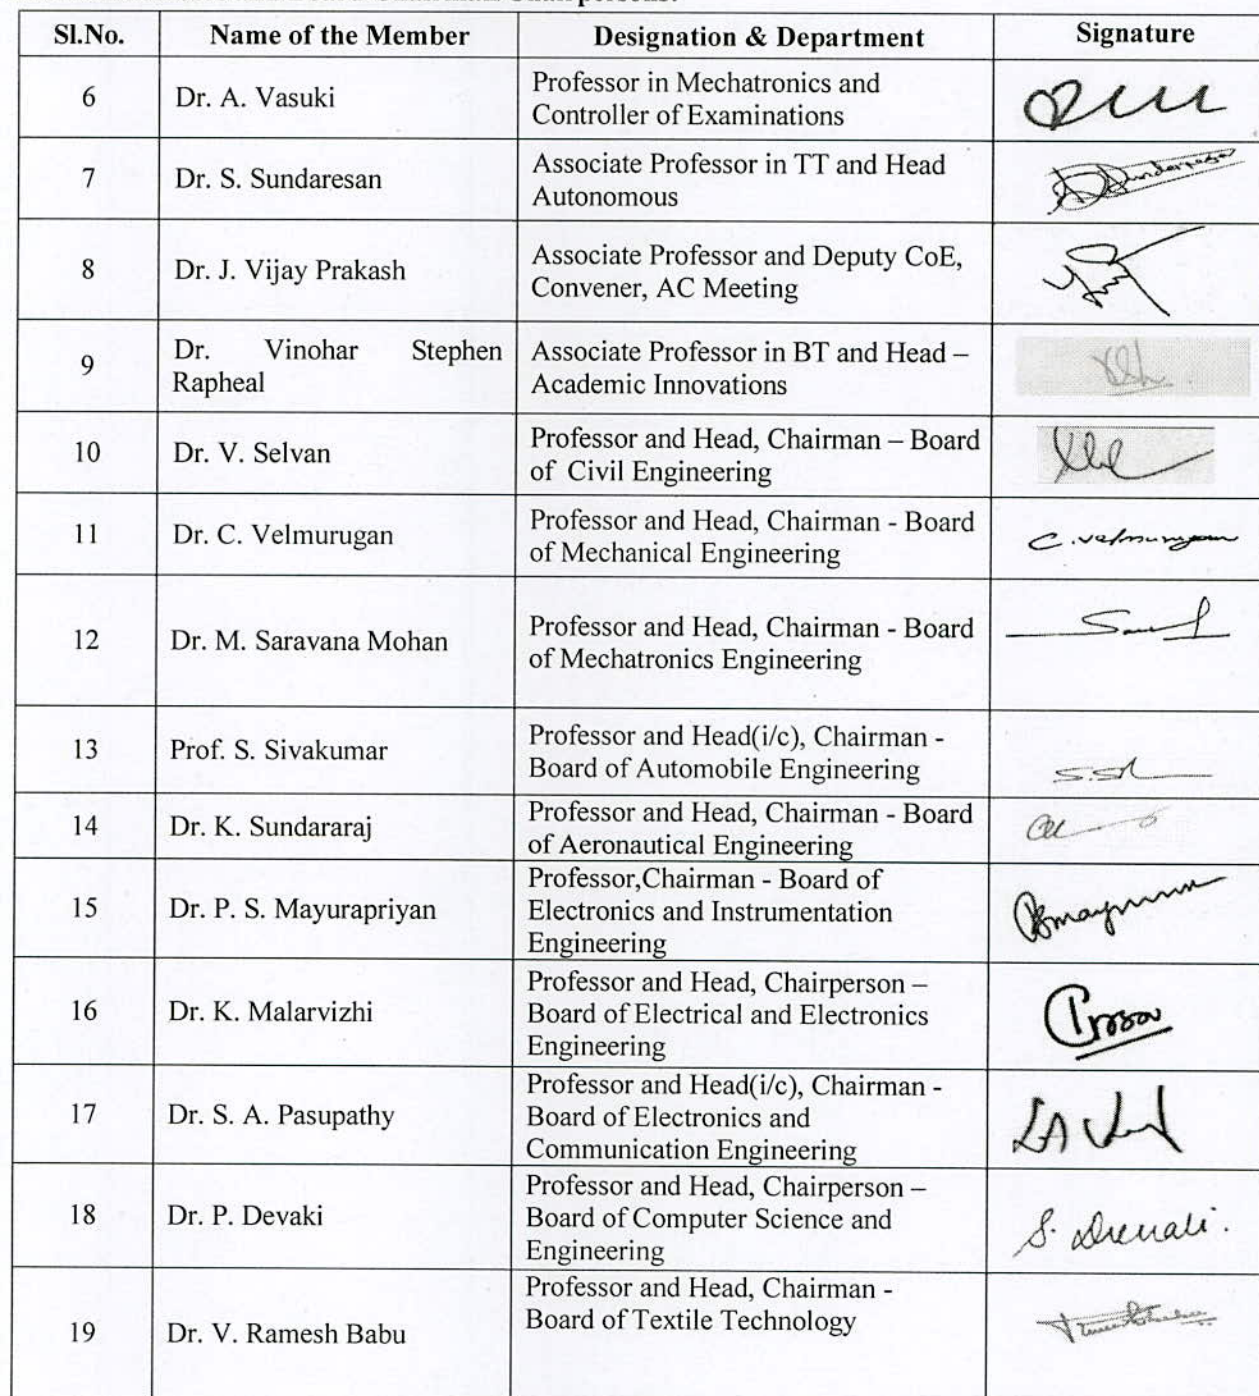 Sl.No. Name of the Member Designation & Department Signature
6 Dr. A. Vasuki Professor in Mechatronics and
Controller of Examinations
7 Dr. S. Sundaresan Associate Professor in TT and Head
Autonomous
8 Dr. J. Vijay Prakash Associate Professor and Deputy CoE,
Convener, AC Meeting
9 Dr. Vinohar Stephen Associate Professor in BT and Head –
Rapheal Academic Innovations
10 Dr. V. Selvan Professor and Head, Chairman – Board
of Civil Engineering
11 Dr. C. Velmurugan Professor and Head, Chairman - Board
of Mechanical Engineering C. Velmurugan
12 Dr. M. Saravana Mohan Professor and Head, Chairman - Board
of Mechatronics Engineering
13 Prof. S. Sivakumar Professor and Head(i/c), Chairman -
Board of Automobile Engineering
14 Dr. K. Sundararaj Professor and Head, Chairman - Board
of Aeronautical Engineering
Professor,Chairman - Board of
15 Dr. P. S. Mayurapriyan Electronics and Instrumentation
Engineering
Professor and Head, Chairperson –
16 Dr. K. Malarvizhi Board of Electrical and Electronics
Engineering
Professor and Head(i/c), Chairman -
17 Dr. S. A. Pasupathy Board of Electronics and
Communication Engineering
Professor and Head, Chairperson –
18 Dr. P. Devaki Board of Computer Science and
Engineering
Professor and Head, Chairman -
Board of Textile Technology
19 Dr. V. Ramesh Babu